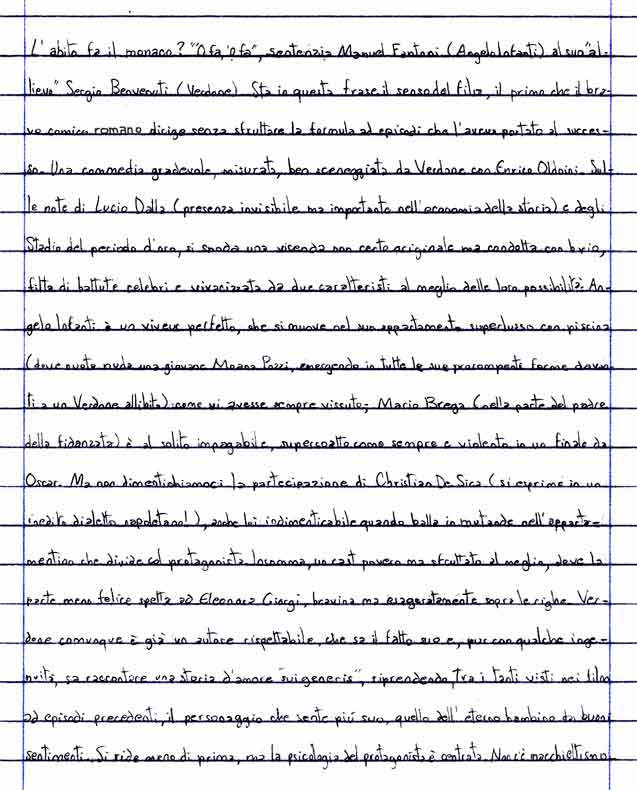 L'abito fa il monaco? "O fa, 'o fa", sentenzia Manuel Fantoni (Angelo Infanti) al suo "al-
lievo" Sergio Benvenuti (Verdone). Sta in questa frase il senso del film, il primo che il bra-
vo comico romano dirige senza sfruttare la formula ad episodi che l'aveva portato al succes-
so. Una commedia gradevole, misurata, ben sceneggiata da Verdone con Enrico Oldoini. Sul-
le note di Lucio Dalla (presenza invisibile ma importante nell'economia della storia) e degli
Stadio del periodo d'oro, si snoda una vicenda non certo originale ma condotta con brio,
fitta di battute celebri e vivacizzata da due caratteristi al meglio delle loro possibilità: An-
gelo Infanti è un viveur perfetto, che si muove nel suo appartamento superlusso con piscina
(dove nuota nuda una giovane Moana Pozzi, emergendo in tutte le sue prorompenti forme davan-
ti a un Verdone allibito) come vi avesse sempre vissuto; Mario Brega (nella parte del padre
della fidanzata) è al solito impagabile, supercoatto come sempre e violento in un finale da
Oscar. Ma non dimentichiamoci la partecipazione di Christian De Sica (si esprime in un
inedito dialetto napoletano!), anche lui indimenticabile quando balla in mutande nell'apparta-
mentino che divide col protagonista. Insomma, un cast povero ma sfruttato al meglio, dove la
parte meno felice spetta ad Eleonora Giorgi, bravina ma esageratamente sopra le righe. Ver-
done comunque è già un autore rispettabile, che sa il fatto suo e, pur con qualche inge-
nuità, sa raccontare una storia d'amore "sui generis", riprendendo, tra i tanti visti nei film
ad episodi precedenti, il personaggio che sente più suo, quello dell'eterno bambino dai buoni
sentimenti. Si ride meno di prima, ma la psicologia del protagonista è centrata. Non c'è macchiettismo